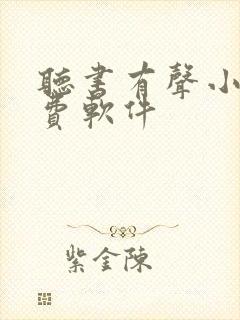 聽書有聲小
費軟件
紫金陳